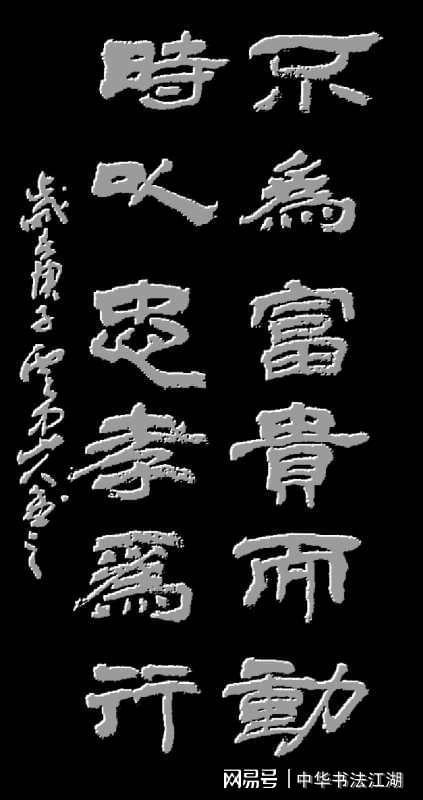 不為富貴而動
時以忠孝為行
歲在庚子雲南山人書之
网易号 | 中华书法江湖